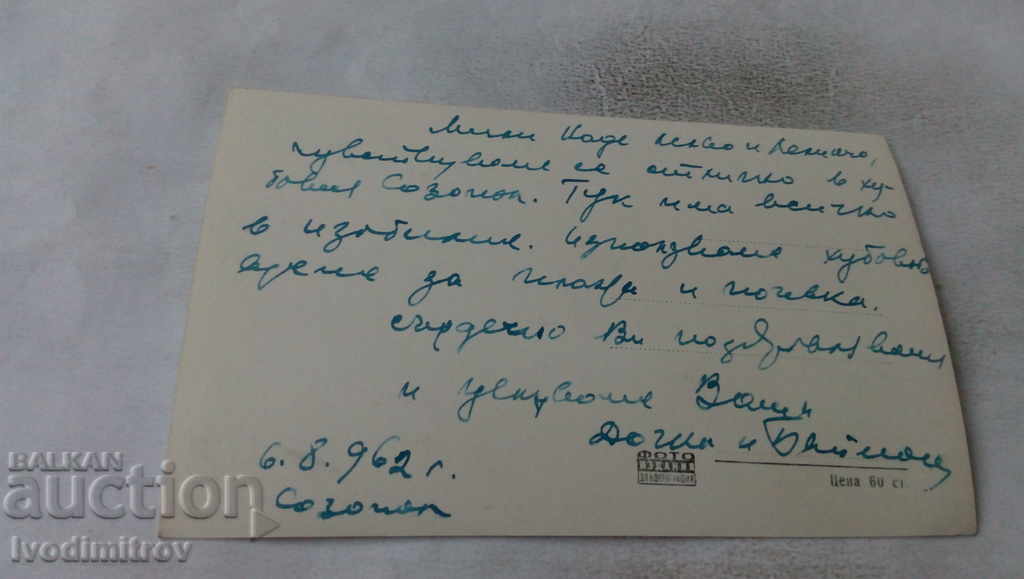 Мили
чувствуваме се отлично в ху-
бавия Созопол. Тук има всичко
в изобилие. Използваме хубавото
време за плаж и почивка.
Сърдечно Ви поздравяваме
и целуваме Ваши
и
6.8.962 г.
Созопол
ФОТО
ИЗДАНИЕ
Цена 60 ст.
BALKAN
auction
Ivodimitrov